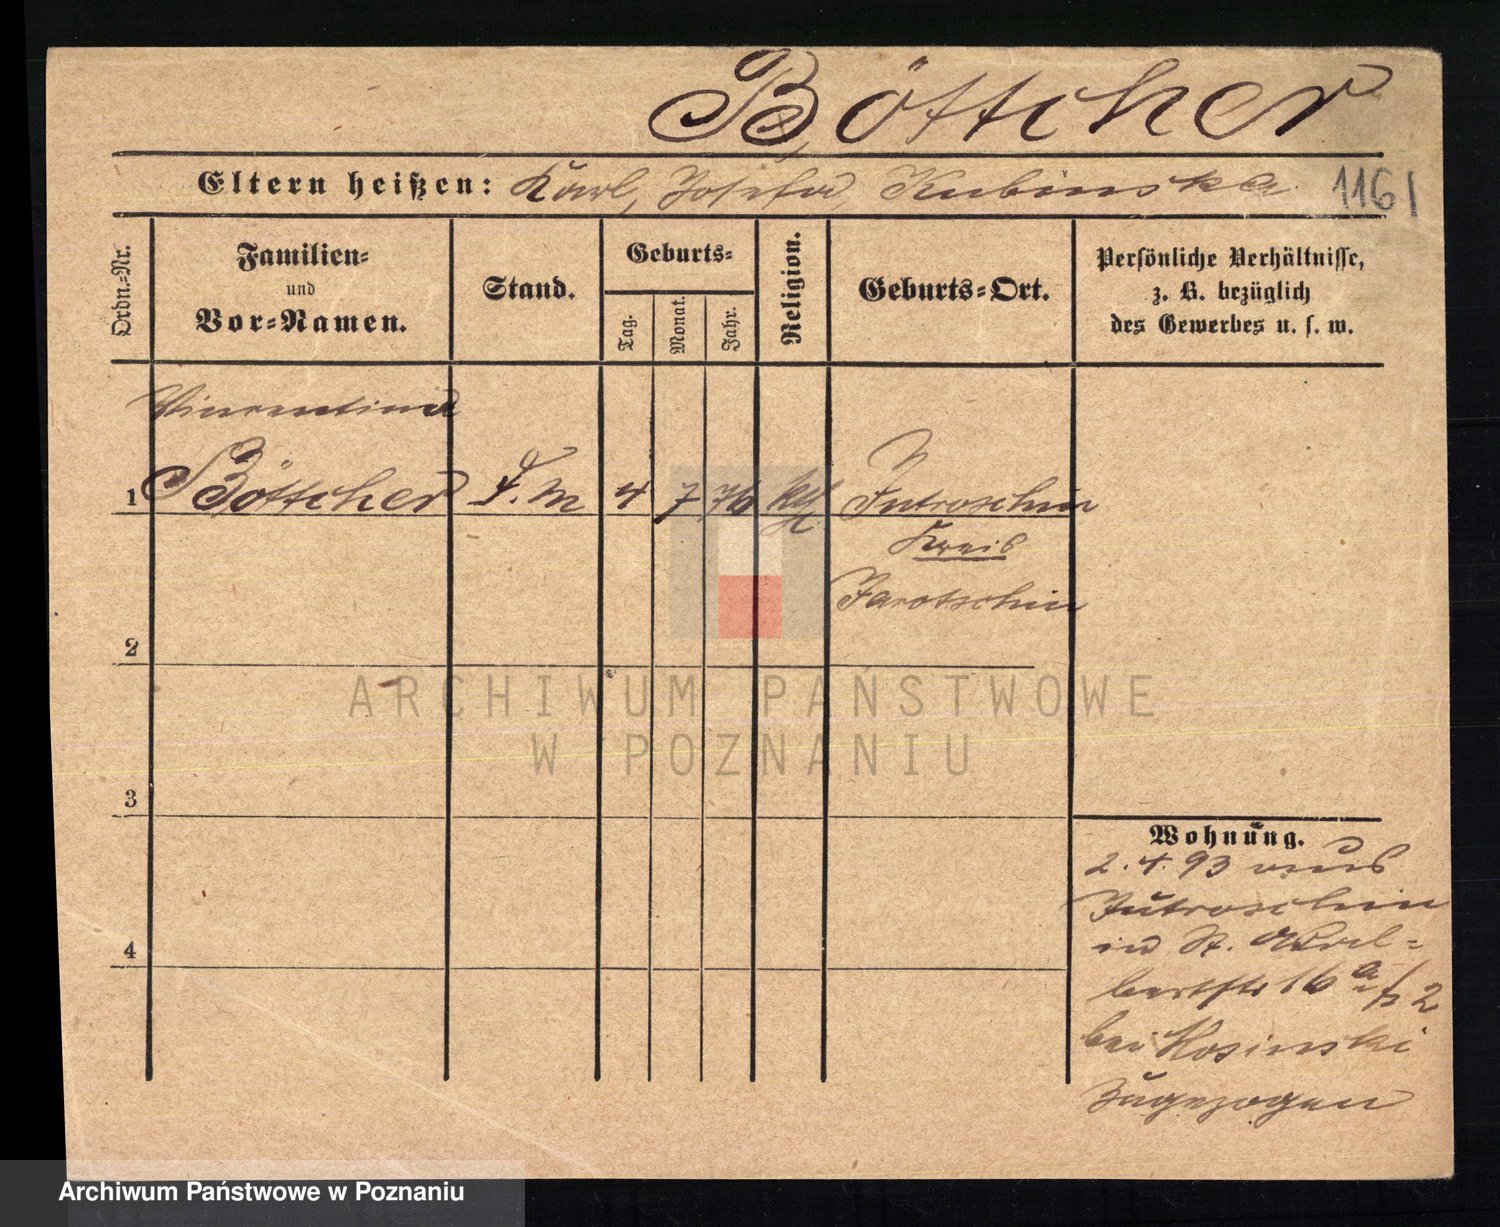 Böttcher
Eltern heißen: Karl, Josefa, Kubinska
1161
Ordn.-Nr.
Familien-
und
Vor-Namen.
Stand.
Geburts-
Tag.
Monat.
Jahr.
Religion.
Geburts-Ort.
Persönliche Verhältnisse,
z. B. bezüglich
des Gewerbes u. s. w.
Vincentina
1 Böttcher D. M 4 7 76 kth Jutroschin
Kreis
Jarotschin
2
3
4
Wohnung.
2. 4. 93 aus
Jutroschin
in St. Adal-
bertstr 16 a
bei Kosinski
Zugezogen
ARCHIWUM PAŃSTWOWE
W POZNANIU
Archiwum Państwowe w Poznaniu